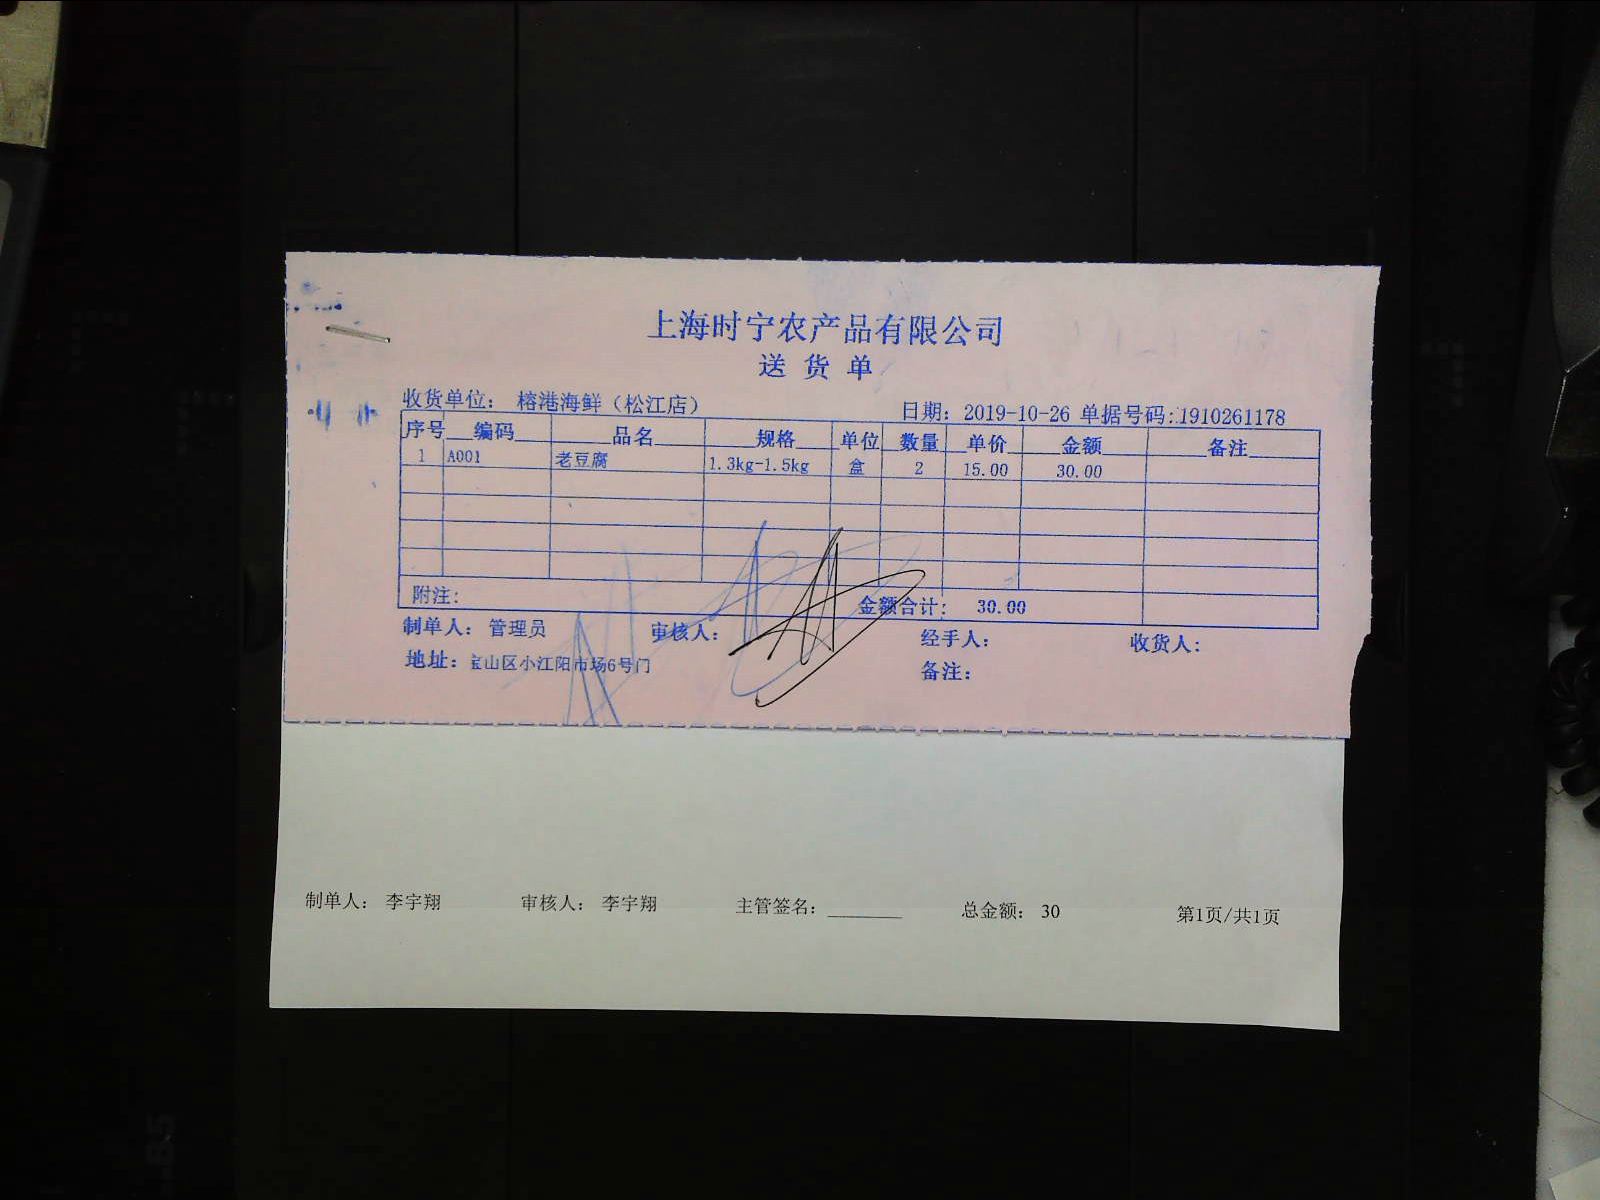 上海时宁农产品有限公司
送货单
收货单位： 榕港海鲜（松江店） 日期： 2019-10-26 单据号码:1910261178
序号 编码 品名 规格 单位 数量 单价 金额 备注
1 A001 老豆腐 1.3kg-1.5kg 盒 2 15.00 30.00
附注: 金额合计: 30.00
制单人: 管理员 审核人: 经手人: 收货人:
地址: 宝山区小江阳市场6号门 备注:
制单人: 李宇翔 审核人: 李宇翔 主管签名: 总金额: 30 第1页/共1页